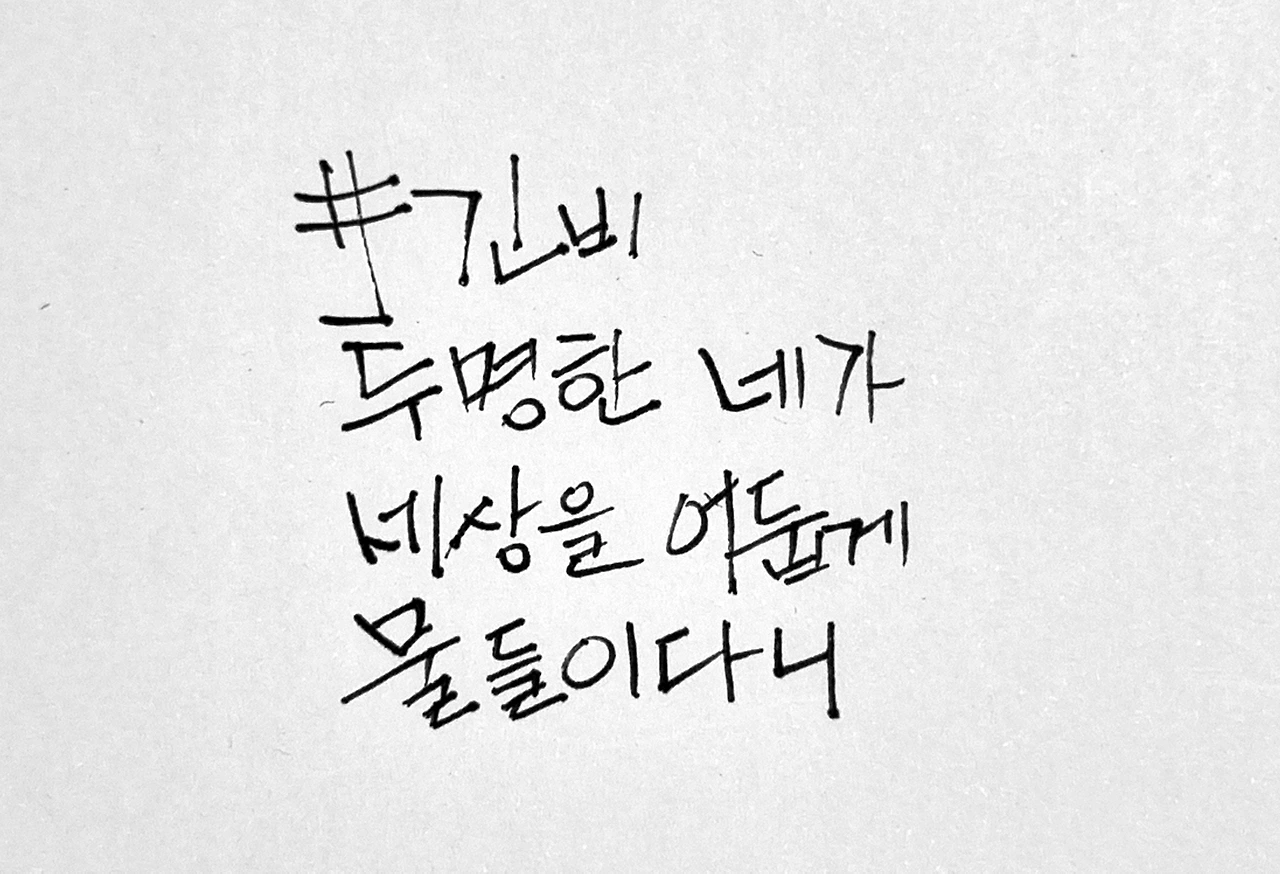 #긴비
투명한 네가
세상을 어둡게
물들이다니